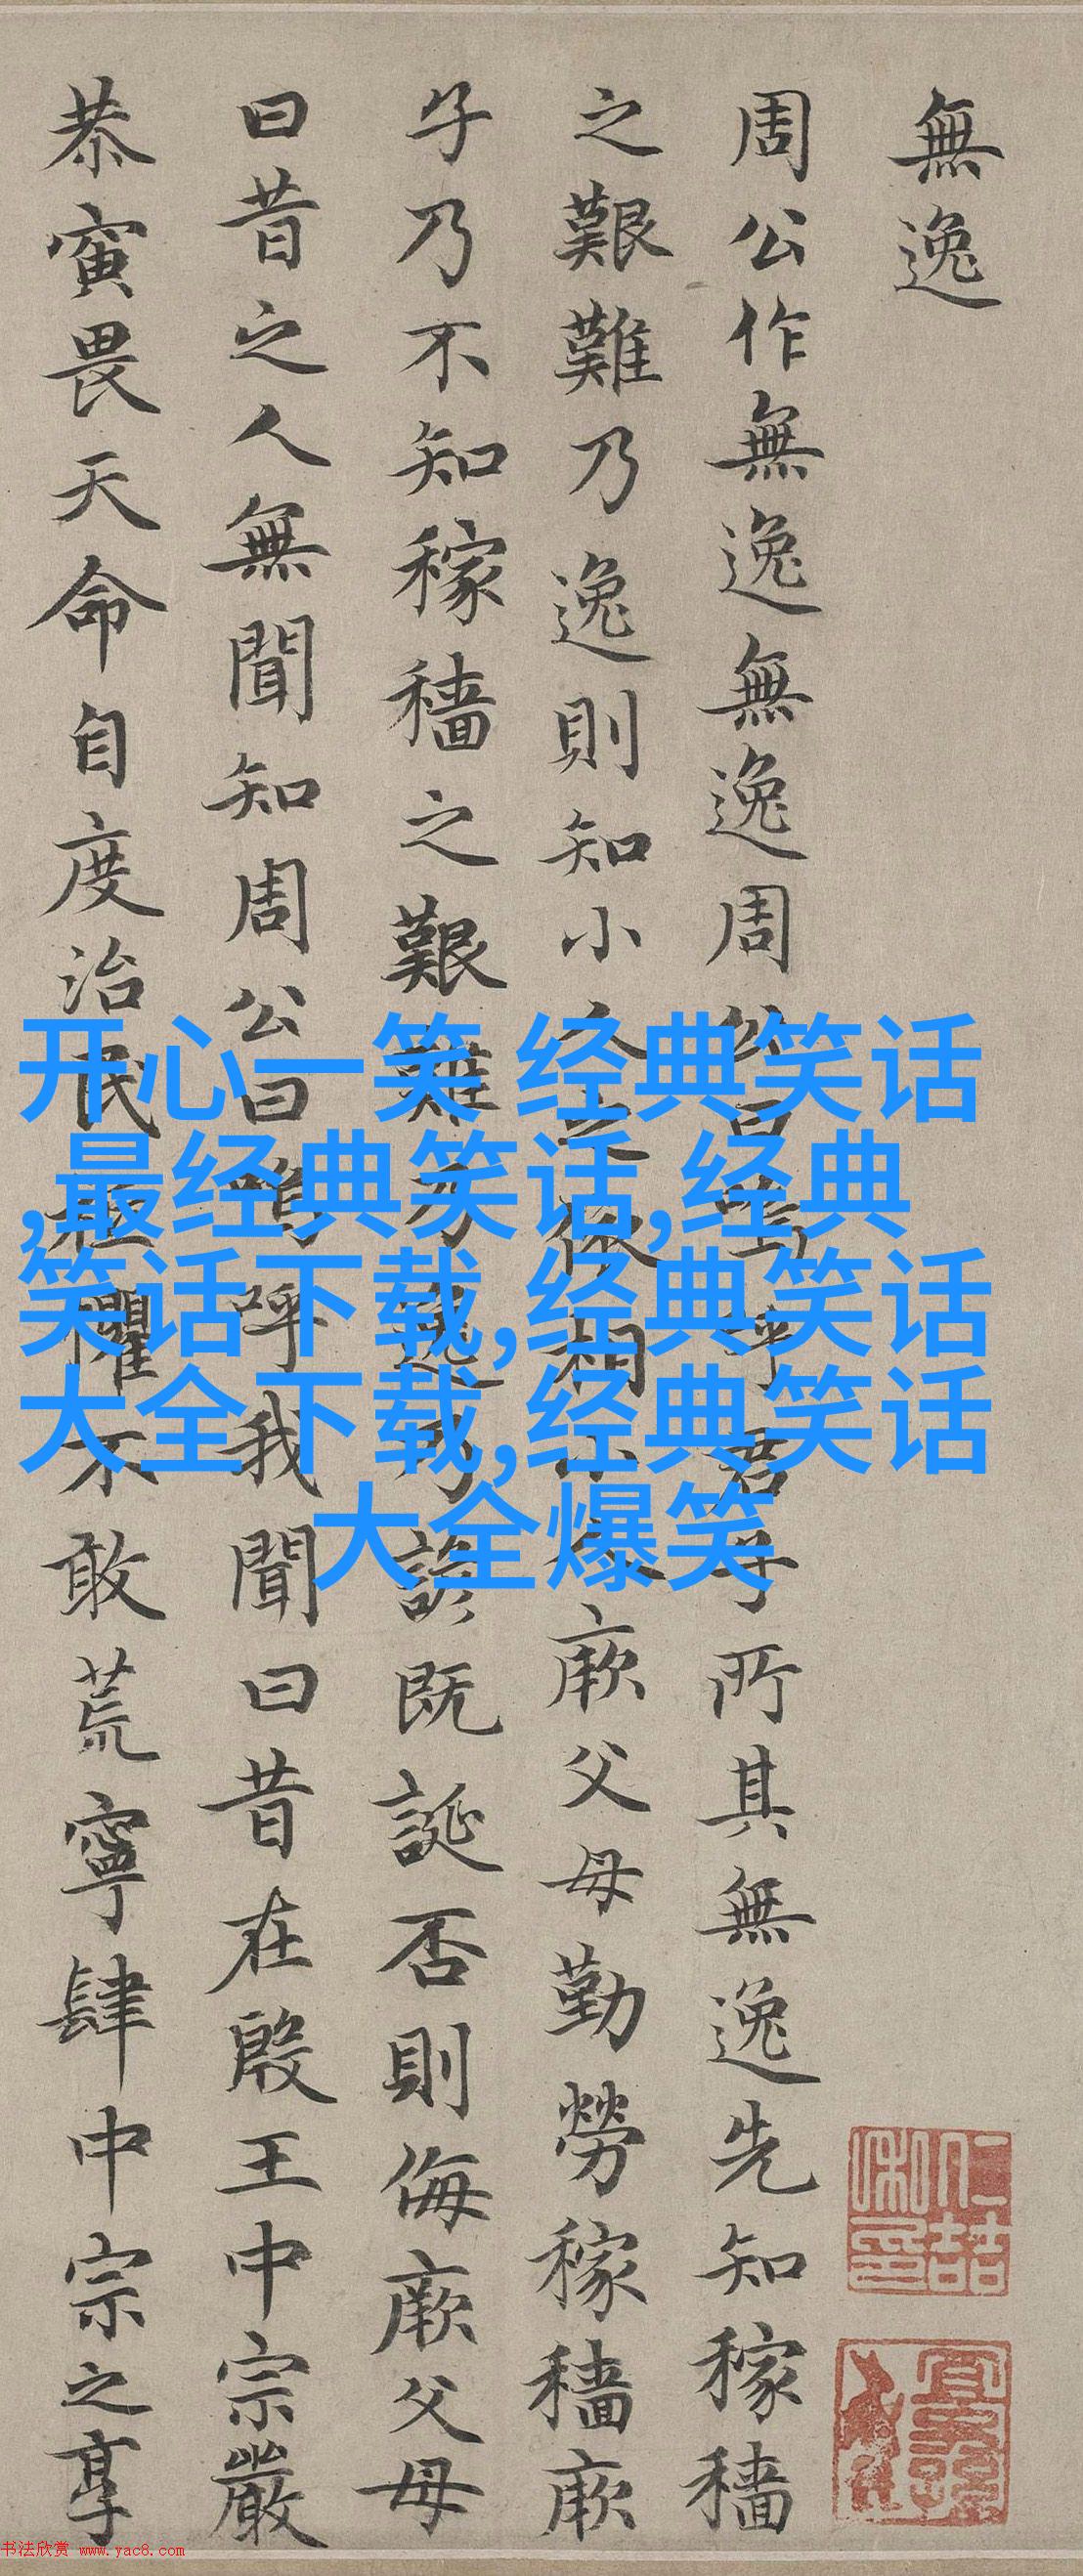 無逸
周公作無逸無逸周公曰嗚呼君子所其無逸先知稼穡
之艱難乃逸則知小人之依相小人厥父母勤勞稼穡厥
子乃不知稼穡之艱難乃逸乃諺既誕否則侮厥父母
曰昔之人無聞知周公曰嗚呼我聞曰昔在殷王中宗嚴
恭寅畏天命自度治民祗懼不敢荒寧肆中宗之享
开心一笑 经典笑话
,最经典笑话,经典
笑话下载,经典笑话
大全下载,经典笑话
大全爆笑
书法欣赏 www.yac8.com